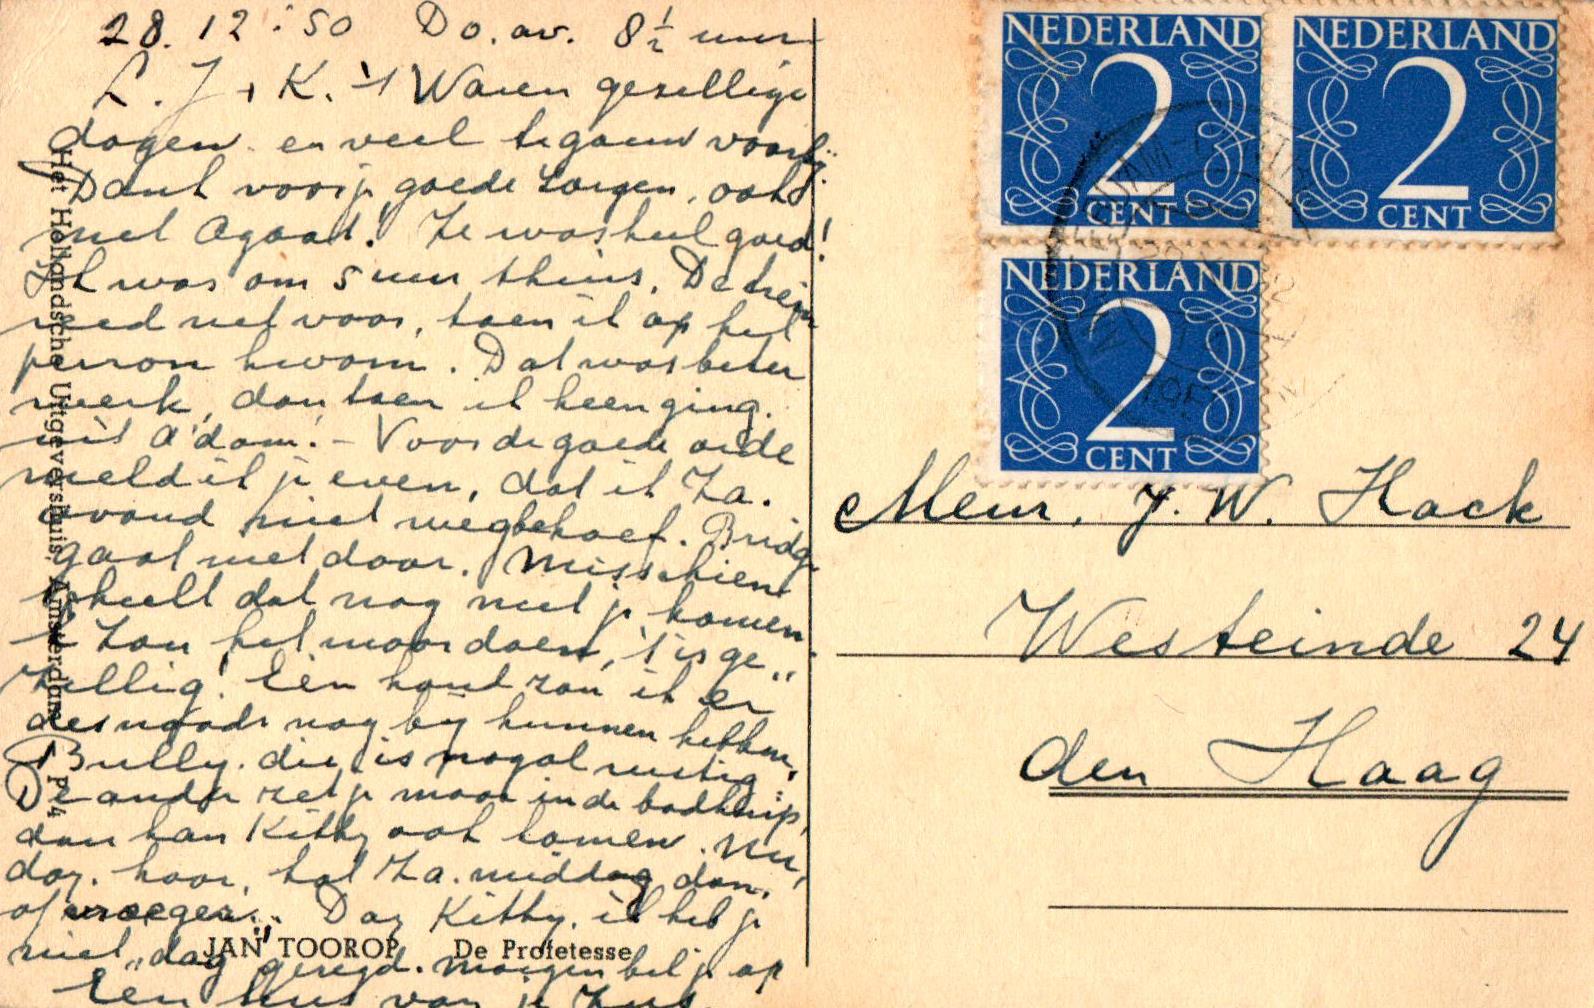 28.12.'50 Do. av. 8½ uur
L. J + K. 't Waren gezellige
dagen en veel te gauw voorbij.
Dank voor je goede zorgen, ook
met Agaat! Ze was heel goed!
Ik was om 5 uur thuis. De trein
reed net voor, toen ik op het
perron kwam. Dat was beter
werk, dan toen ik heen ging.
uit A'dam! - Voor de goede orde
meld ik je even, dat ik Za.
avond niet weg behoef. Bridge
gaat niet door. Misschien
scheelt dat nog met je komen
'k Zou het maar doen, 't is ge"
zellig! Eén hond zou ik er
desnoods nog bij kunnen hebben,
Bully. die is nogal rustig.
De ander zet je maar in de badkuip,
dan kan Kitty ook komen. Nu,
dag. hoor, tot Za. middag dan,
of vroeger.. Dag Kitty. ik heb je
niet „dag" gezegd. morgen bel je op
Een kus van je Zus.
Het Hollandsche Uitgevershuis, Amsterdam P 4
JAN TOOROP De Profetesse
NEDERLAND
2
CENT
NEDERLAND
2
CENT
NEDERLAND
2
CENT
J. W. Hack
Westeinde 24
den Haag